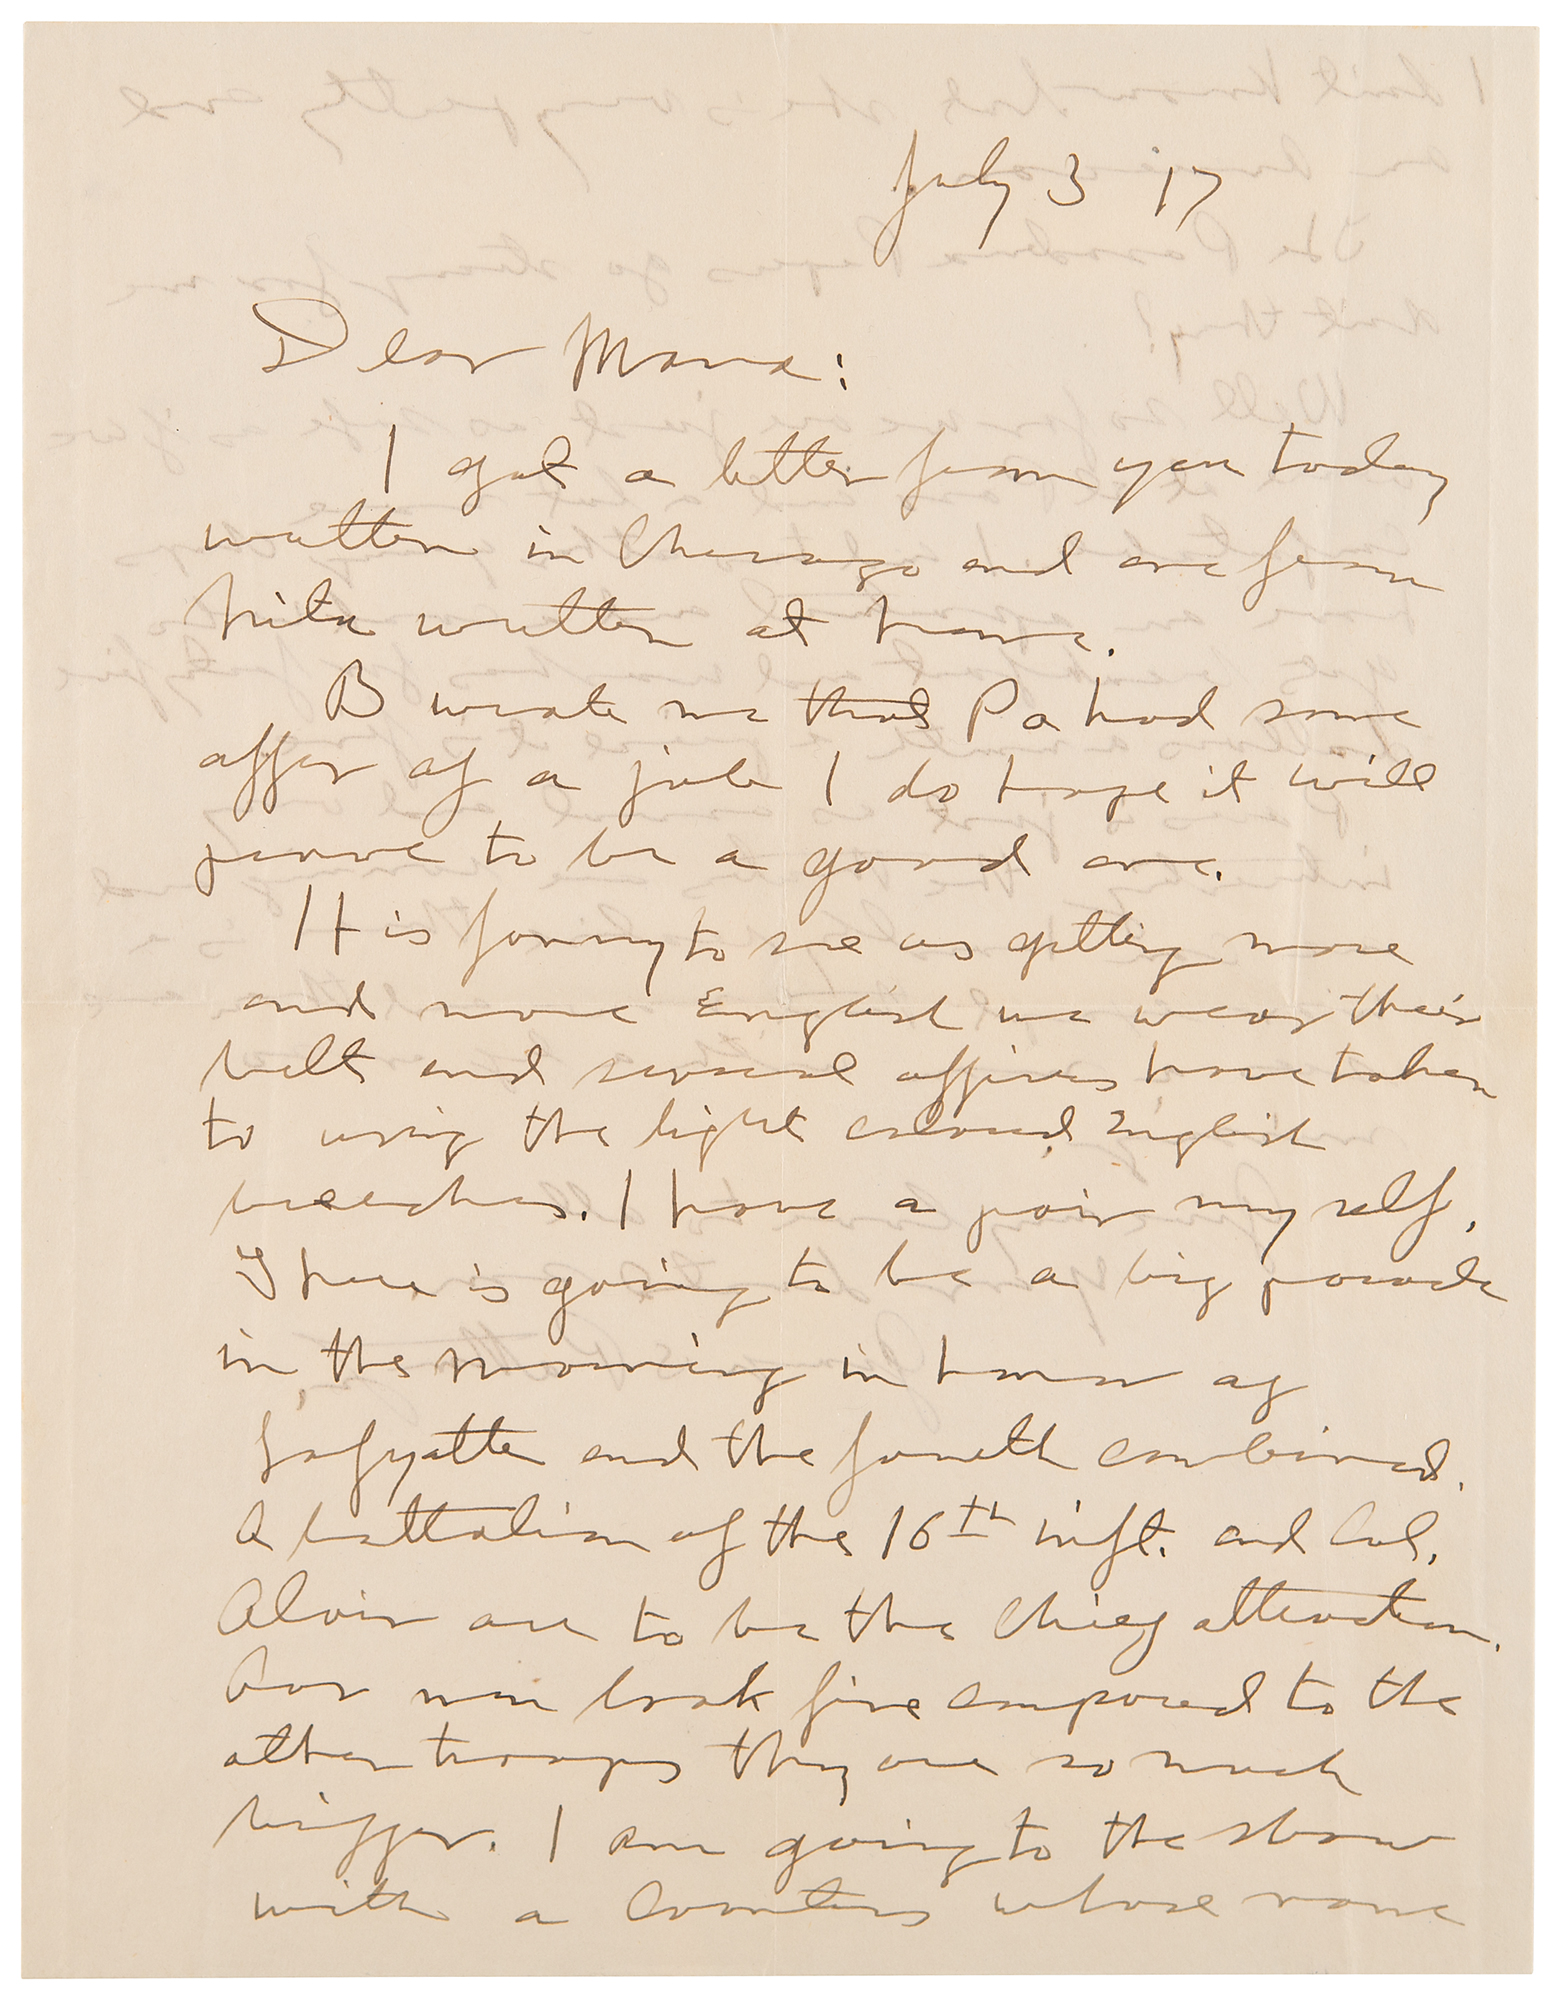 July 3 17
Dear Mama:
I got a letter from you today
written in Chicago and one from
Nita written at home.
B wrote me that Pa had some
offer of a job I do hope it will
prove to be a good one.
It is funny to see us getting more
and more English we wear their
belt and several officers have taken
to using the light colored English
breeches. I have a pair my self.
There is going to be a big parade
in the morning in honor of
Lafyatte and the fourth combined.
A battalion of the 16th inft. and Col.
are to be the chief attraction.
Our men look fine compared to the
other troops they are so much
bigger. I am going to the show
with a Countess whose name